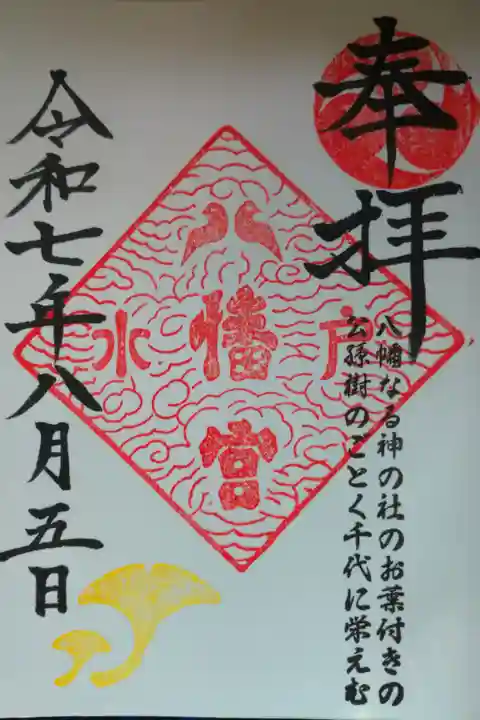 奉拝
八幡なる神の社のお葉付きの
公孫樹のごとく千代に栄えむ
水戸
八幡宮
令和七年八月五日